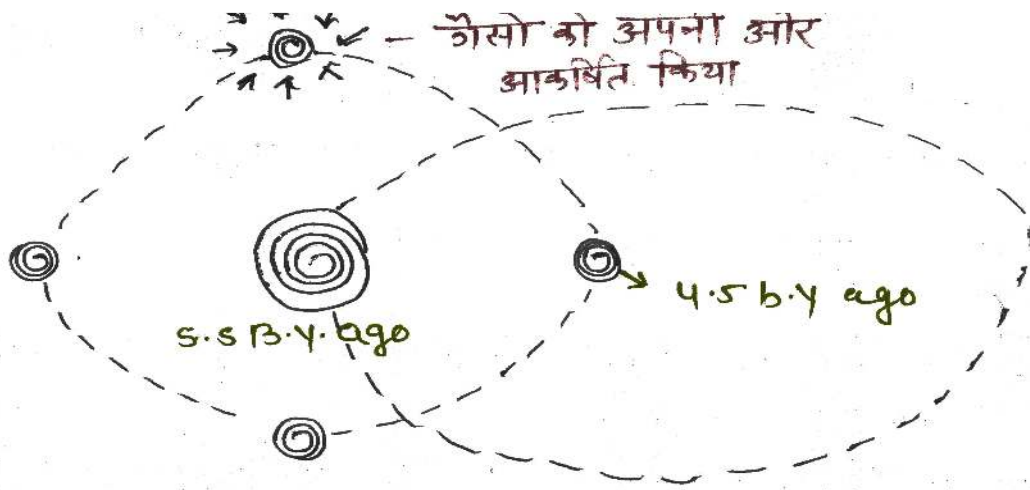 - गैसो को अपनी ओर
आकर्षित किया
5.5 B.Y. ago
4.5 b.y ago